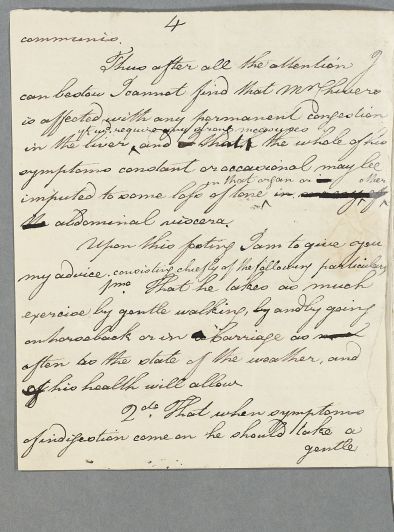 4
communis.
Thus after all the attention I
can bestow I cannot find that Mr Chivers
is affected with any permanent congestion
yt wd. require any strong measures
in the liver, and that the whole of his
symptoms constant or occasional may be
in that organ or in other
imputed to some loss of tone
abdominal viscera.
Upon this footing I am to give you
my advice. consisting chiefly of the following particulars
1mo That he takes as much
exercise by gentle walking, and by going
on horseback or in a Carriage as
often as the state of the weather, and
his health will allow
2do That when symptoms
of indigestion come on he should take a
gentle